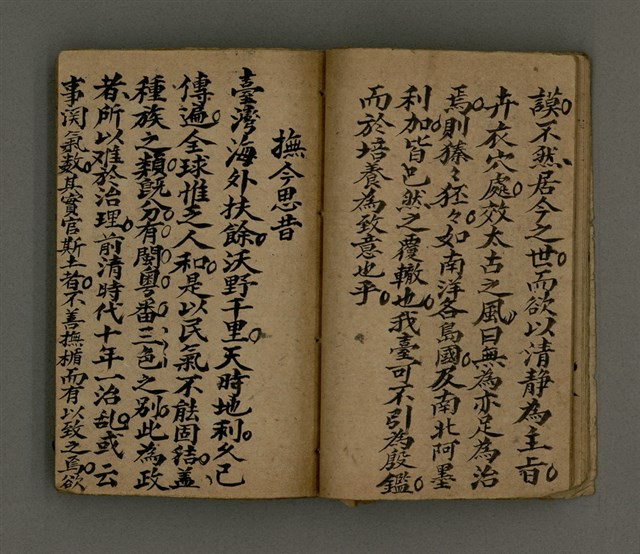 謨不然居今之世而欲以清静為主旨
卉衣穴處效太古之風曰無為亦足為治
焉則獉々狉々如南洋各島國及南北阿墨
利加皆已然之覆轍也我臺可不引為殷鑑
而於培養為致意也乎
撫今思昔
臺灣海外扶餘沃野千里天時地利久已
傳遍全球惟乏人和是以民氣不能固結蓋
種族之類既分有閩粵番三色之別此為政
者所以难於治理前清時代十年一治乱或云
事関氣数其實官斯土者不善撫楯而有以致之焉欲